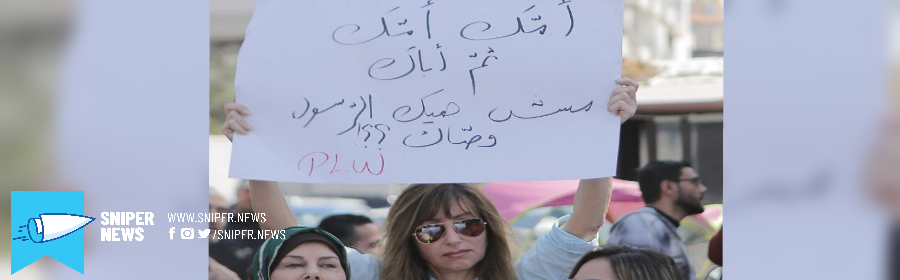 أمّك أمّك
ثمّ أباك
مش هيك الرّسول
وصّاك ؟؟!
PLW
SNIPER
NEWS
WWW.SNIPER.NEWS
/SNIPER.NEWS